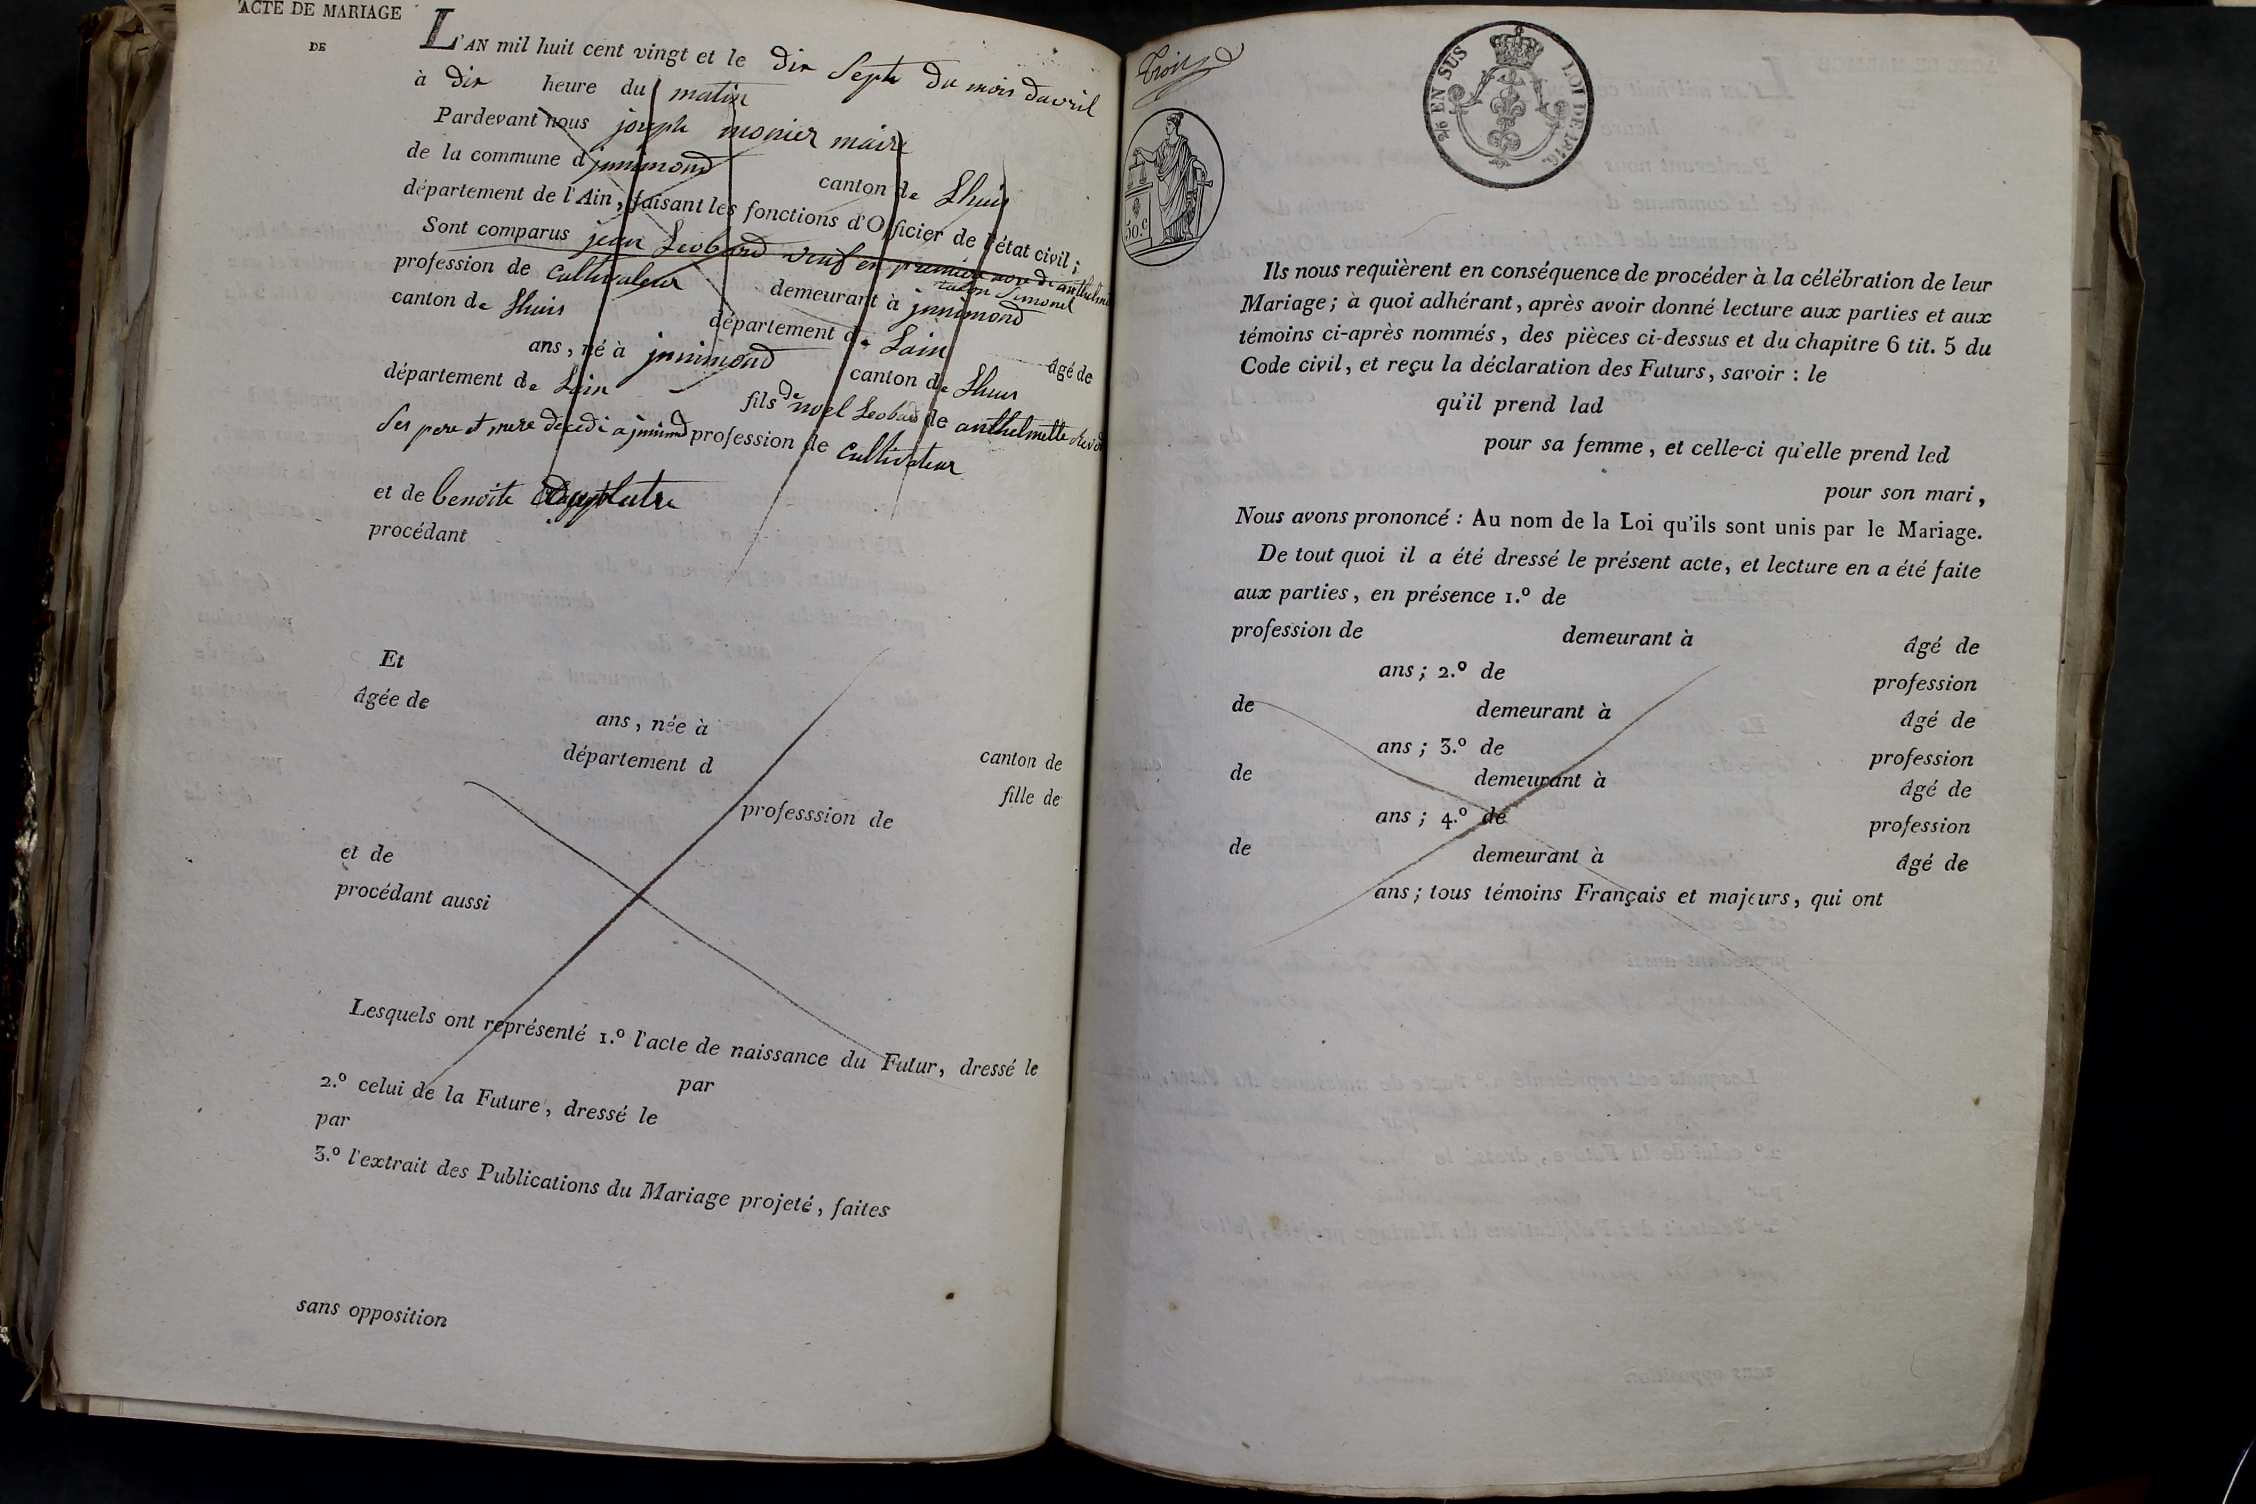 ACTE DE MARIAGE
DE
L'AN mil huit cent vingt et le dix Septe du mois davril
à dix heure du matin
Pardevant nous joseph monier maire
de la commune d jnnimond canton de Lhuis
département de l'Ain, faisant les fonctions d'Officier de l'état civil;
Sont comparus jean Leobard veuf en premiere nore de anthelmette
Simonel
profession de cultivateur demeurant à jnnimond
canton de Lhuis département de Lain âgé de
ans, né à jnnimond canton de Lhuis
département de Lain fils de noel Leobard de anthelmette
Ses pere et mere decedé a jnnimond profession de cultivateur
et de benoite
procédant
Et
âgée de ans, née à canton de
département d fille de
professsion de
et de
procédant aussi
Lesquels ont représenté 1.º l'acte de naissance du Futur, dressé le
par
2.º celui de la Future, dressé le
par
3.º l'extrait des Publications du Mariage projeté, faites
sans opposition
Trois
50.c
2/6 EN SUS LOI DE 1816.
Ils nous requièrent en conséquence de procéder à la célébration de leur
Mariage; à quoi adhérant, après avoir donné lecture aux parties et aux
témoins ci-après nommés, des pièces ci-dessus et du chapitre 6 tit. 5 du
Code civil, et reçu la déclaration des Futurs, savoir : le
qu'il prend lad
pour sa femme, et celle-ci qu'elle prend led
pour son mari,
Nous avons prononcé : Au nom de la Loi qu'ils sont unis par le Mariage.
De tout quoi il a été dressé le présent acte, et lecture en a été faite
aux parties, en présence 1.º de
profession de demeurant à âgé de
ans; 2.º de profession
de demeurant à âgé de
ans; 3.º de profession
de demeurant à âgé de
ans; 4.º de profession
de demeurant à âgé de
ans; tous témoins Français et majeurs, qui ont